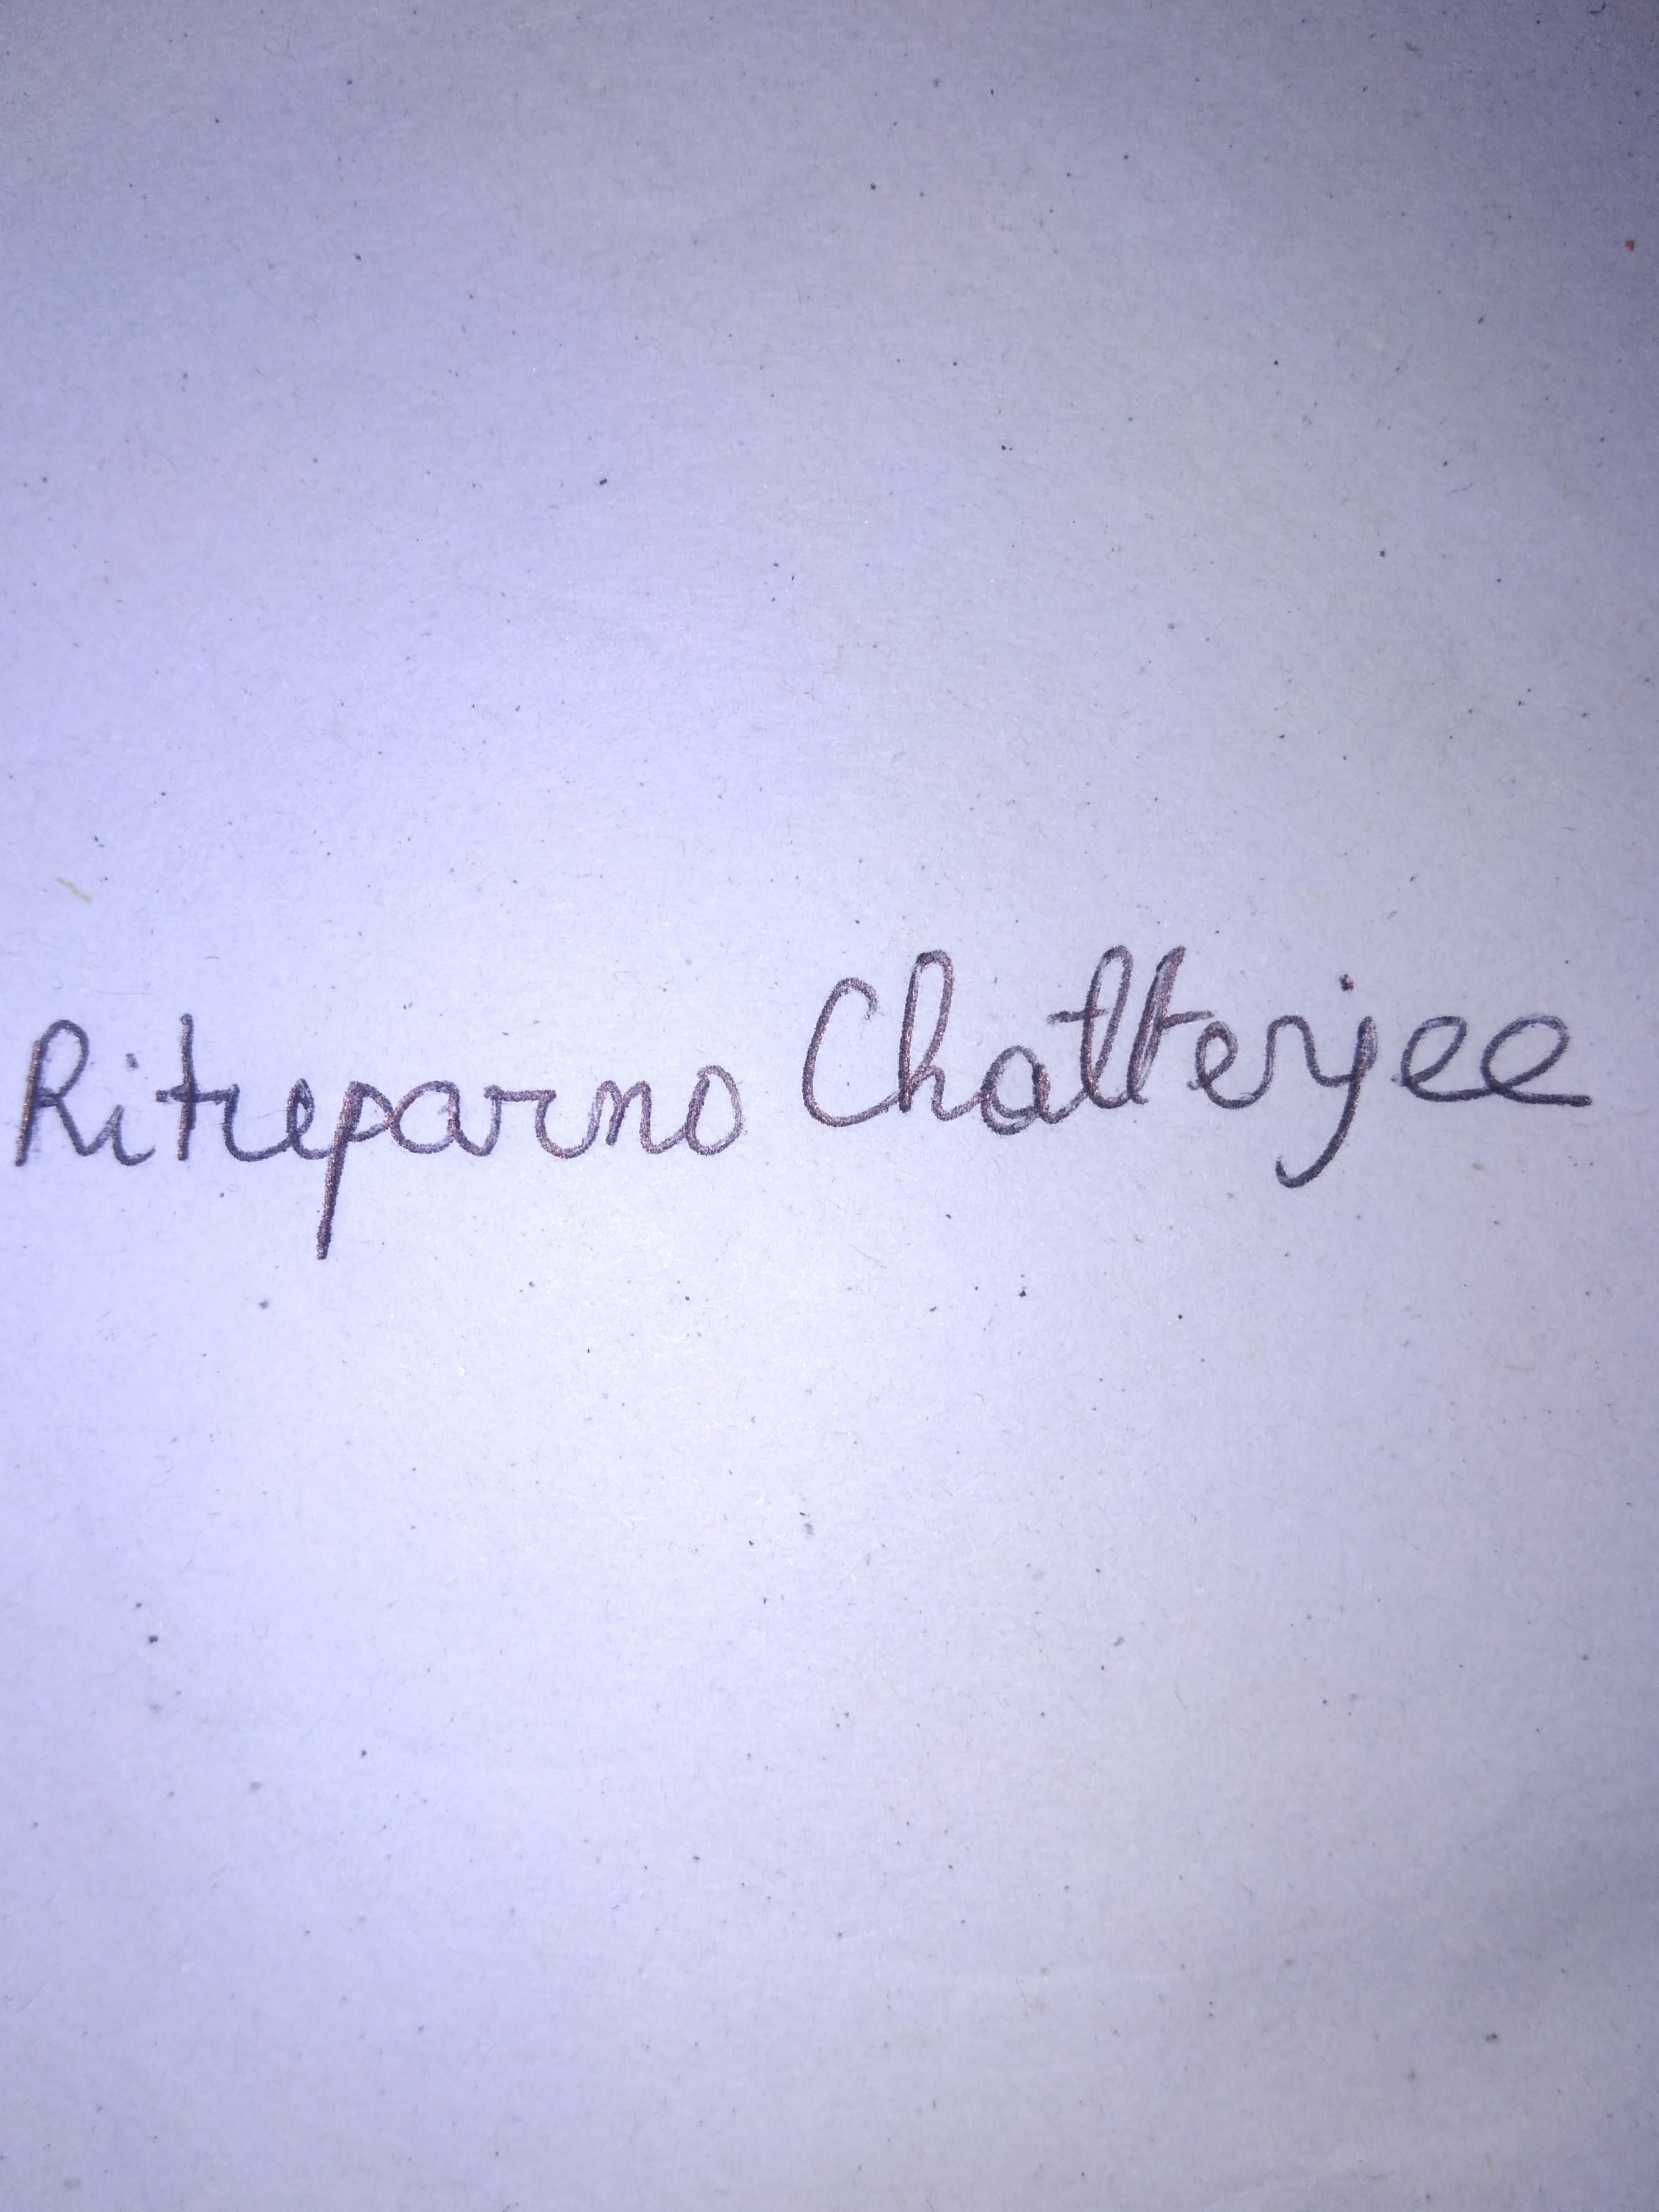 Ritreparno Chatterjee